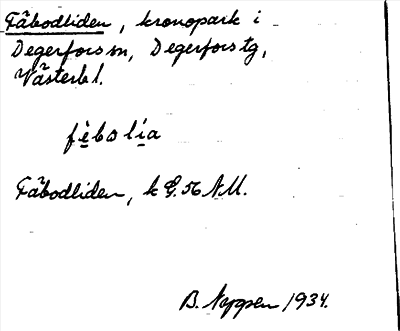 Fäbodliden, kronopark i
Degerfors sn, Degerfors tg,
Västerb l.
fèbolìa
Fäbodliden, k G. 56 NU.
B. Nygren 1934.